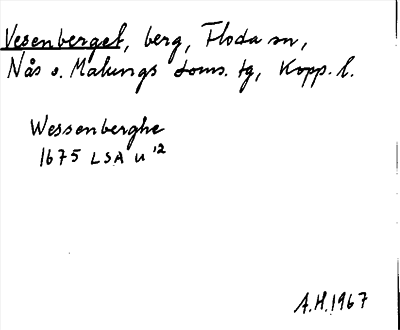 Vesenberget, berg, Floda sn,
Nås o. Malungs doms. tg, Kopp. l.
Wessenberghe
1675 LSA u 12
A.H. 1967